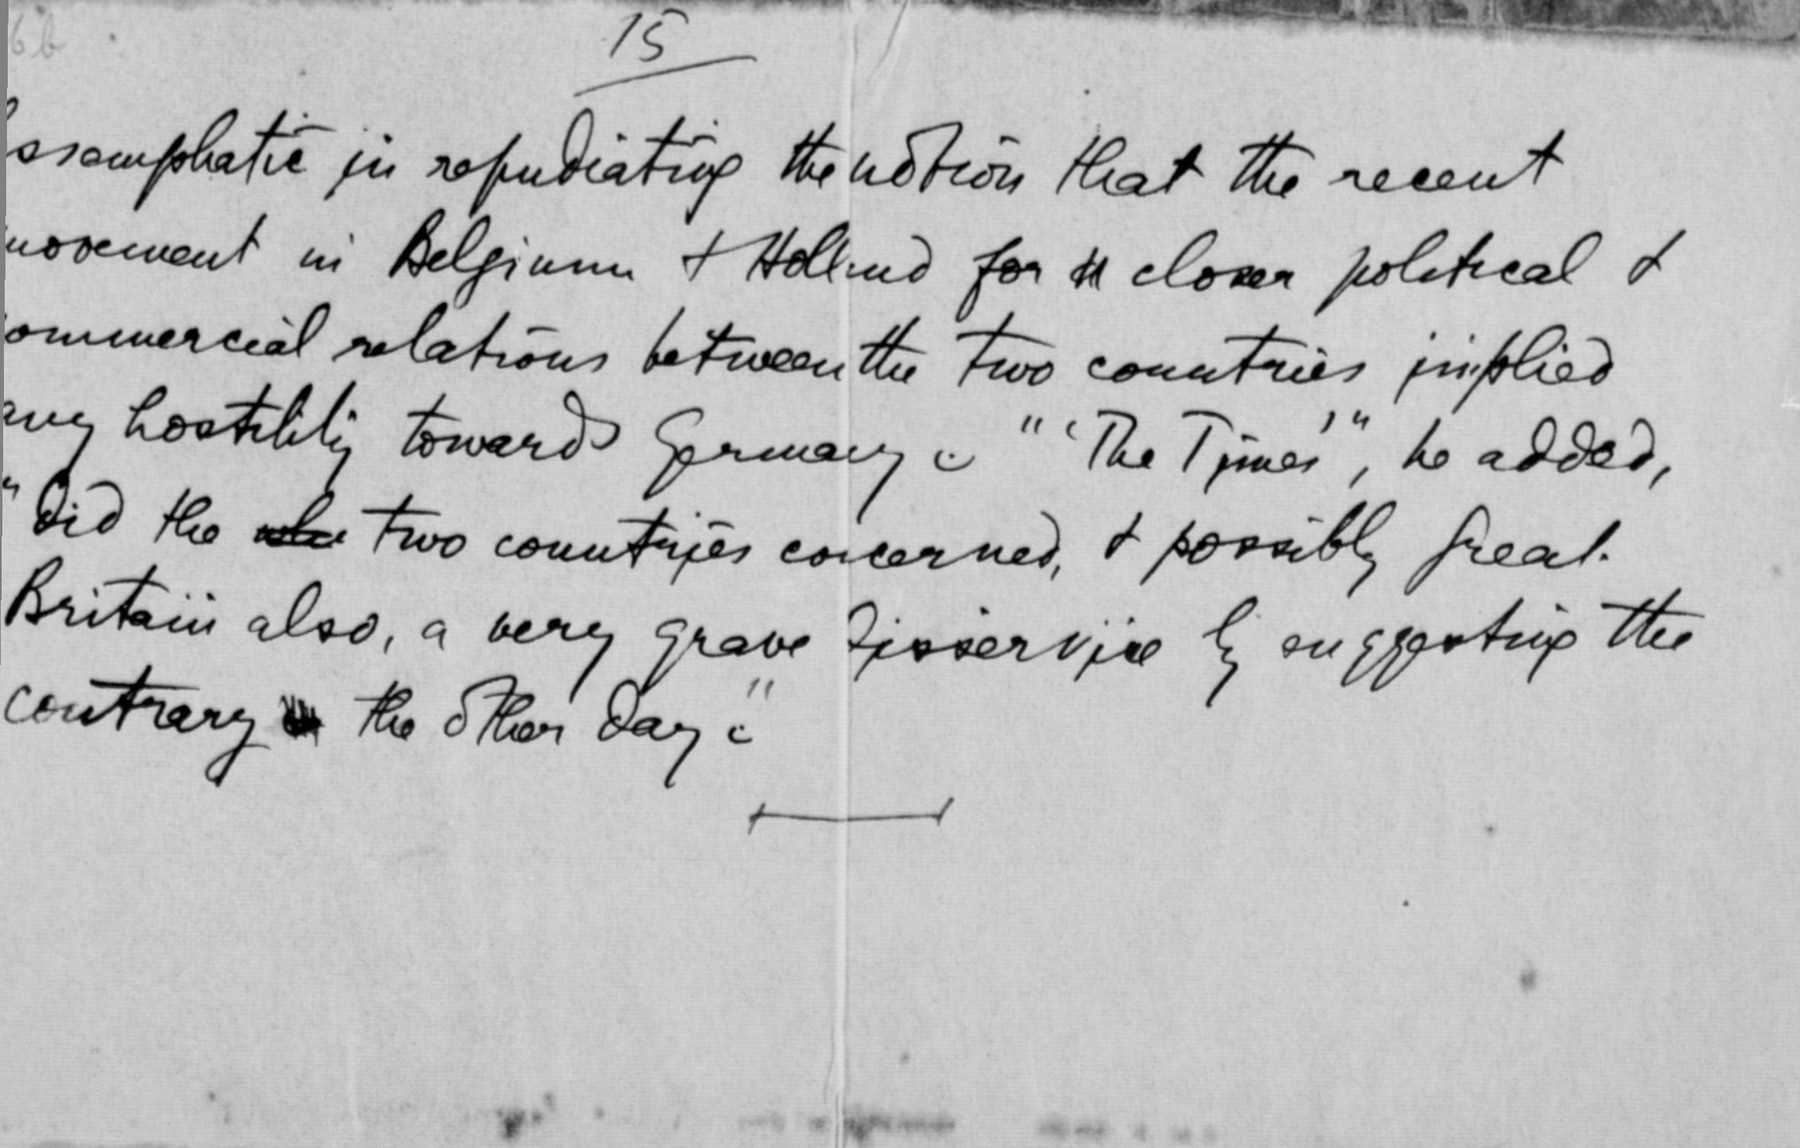 6b
15
emphatic in repudiating the notion that the recent
movement in Belgium & Holland for closer political &
commercial relations between the two countries implied
any hostility towards Germany. " 'The Times' ", he added,
"did the two countries concerned, & possibly Great
Britain also, a very grave disservice by suggesting the
contrary the other day."